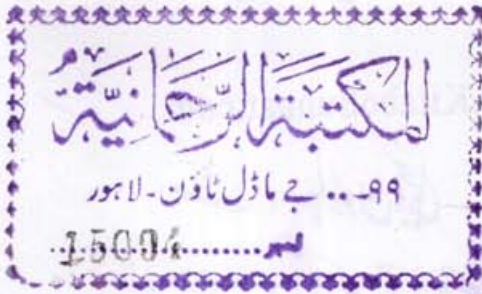 المكتبة الرحمانية
۹۹-.. جے ماڈل ٹاؤن - لاہور
نمبر.....15004.....